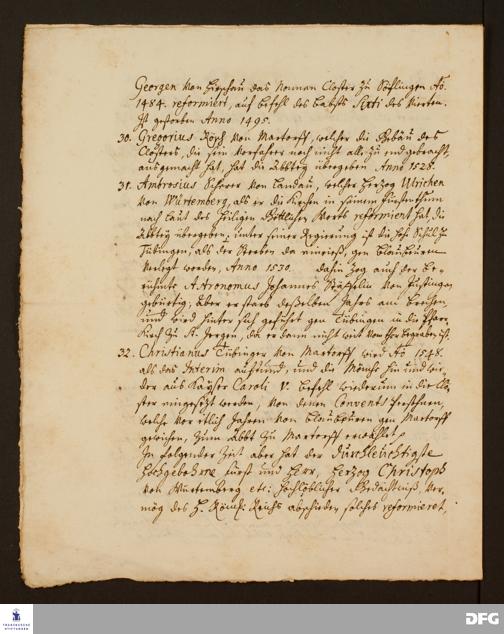 Georgen von Hirschau das Nonnen Closter zu Söflingen Ao.
1484. reformiert, auß befehl des Babsts Sixti des Vierten.
Ist gestorben Anno 1495.
30. Gregorius Rösch von Marckdorff, welcher die Gebäu des
Closters, die sein Vorfahrer noch nicht alle zu end gebracht,
ausgemacht hat, hat die Abbtey übergeben Anno 1523.
31. Ambrosius Schorer von Landau, welcher Herzog Ulrichen
von Würtemberg, als er die Kirchen in seinem Fürstenthum
nach laut des Heiligen Göttlichen Worts reformiert hat, die
Abbtey übergeben, unter seiner Regierung ist die hohe Schul zu
Tübingen, als der Sterben da einrieß, gen Blaubeuren
verlegt worden, Anno 1530. dahin zog auch der be-
rühmte Astronomus Johannes Stöfflin von Justingen
gebürtig; aber er starb desselben Jahrs am brechen,
und ward hinter sich geführt gen Tübingen in die Pfarr
Kirch zu St. Jergen, da er dann nicht weit von der begraben ist.
32. Christianus Tubinger von Marckdorff ward Ao 1548.
als das Interim aufstund, und die Mönche hin und wi-
der aus Kayser Caroli V. befehl wiederum in die Clö-
ster eingesezt worden, von denen Convents Herren,
welche vor etlich Jahren von Blaubeuren gen Marckdorff
gewichen, zum Abbt zu Marckdorff erwählt.
In folgender Zeit aber hat der Durchleuchtigste
Hochgebohrne Fürst und Herr, Herzog Christoph
von Würtemberg etc: hochlöblicher Gedächtniß ver-
mög des H. Röm: Reichs abschieden solches reformieret,
FRANCKESCHE
STIFTUNGEN
DFG